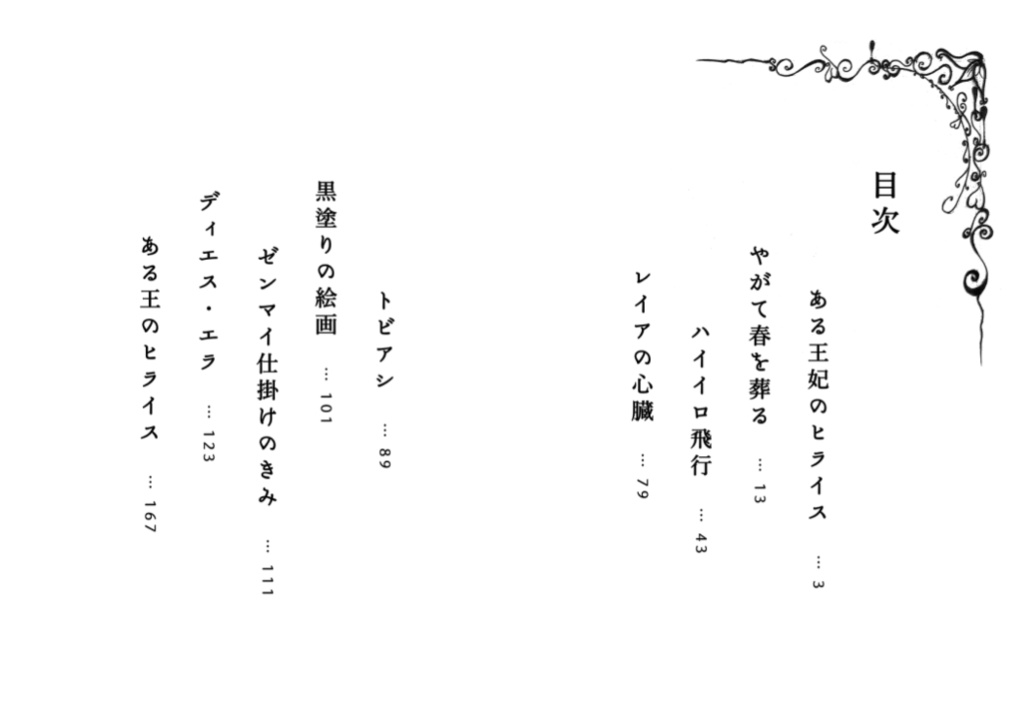 目次
ある王妃のヒライス … 3
やがて春を葬る … 13
ハイイロ飛行 … 43
レイアの心臓 … 79
トビアシ … 89
黒塗りの絵画 … 101
ゼンマイ仕掛けのきみ … 111
ディエス・エラ … 123
ある王のヒライス … 167